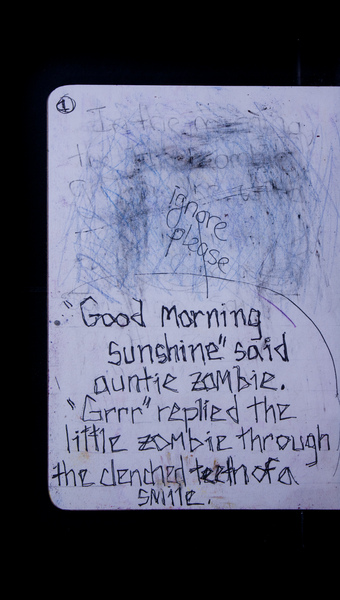 1
In the
ignore
please
"Good Morning
sunshine" said
auntie zombie.
"Grrr" replied the
little zombie through
the clenched teeth of a
smile.